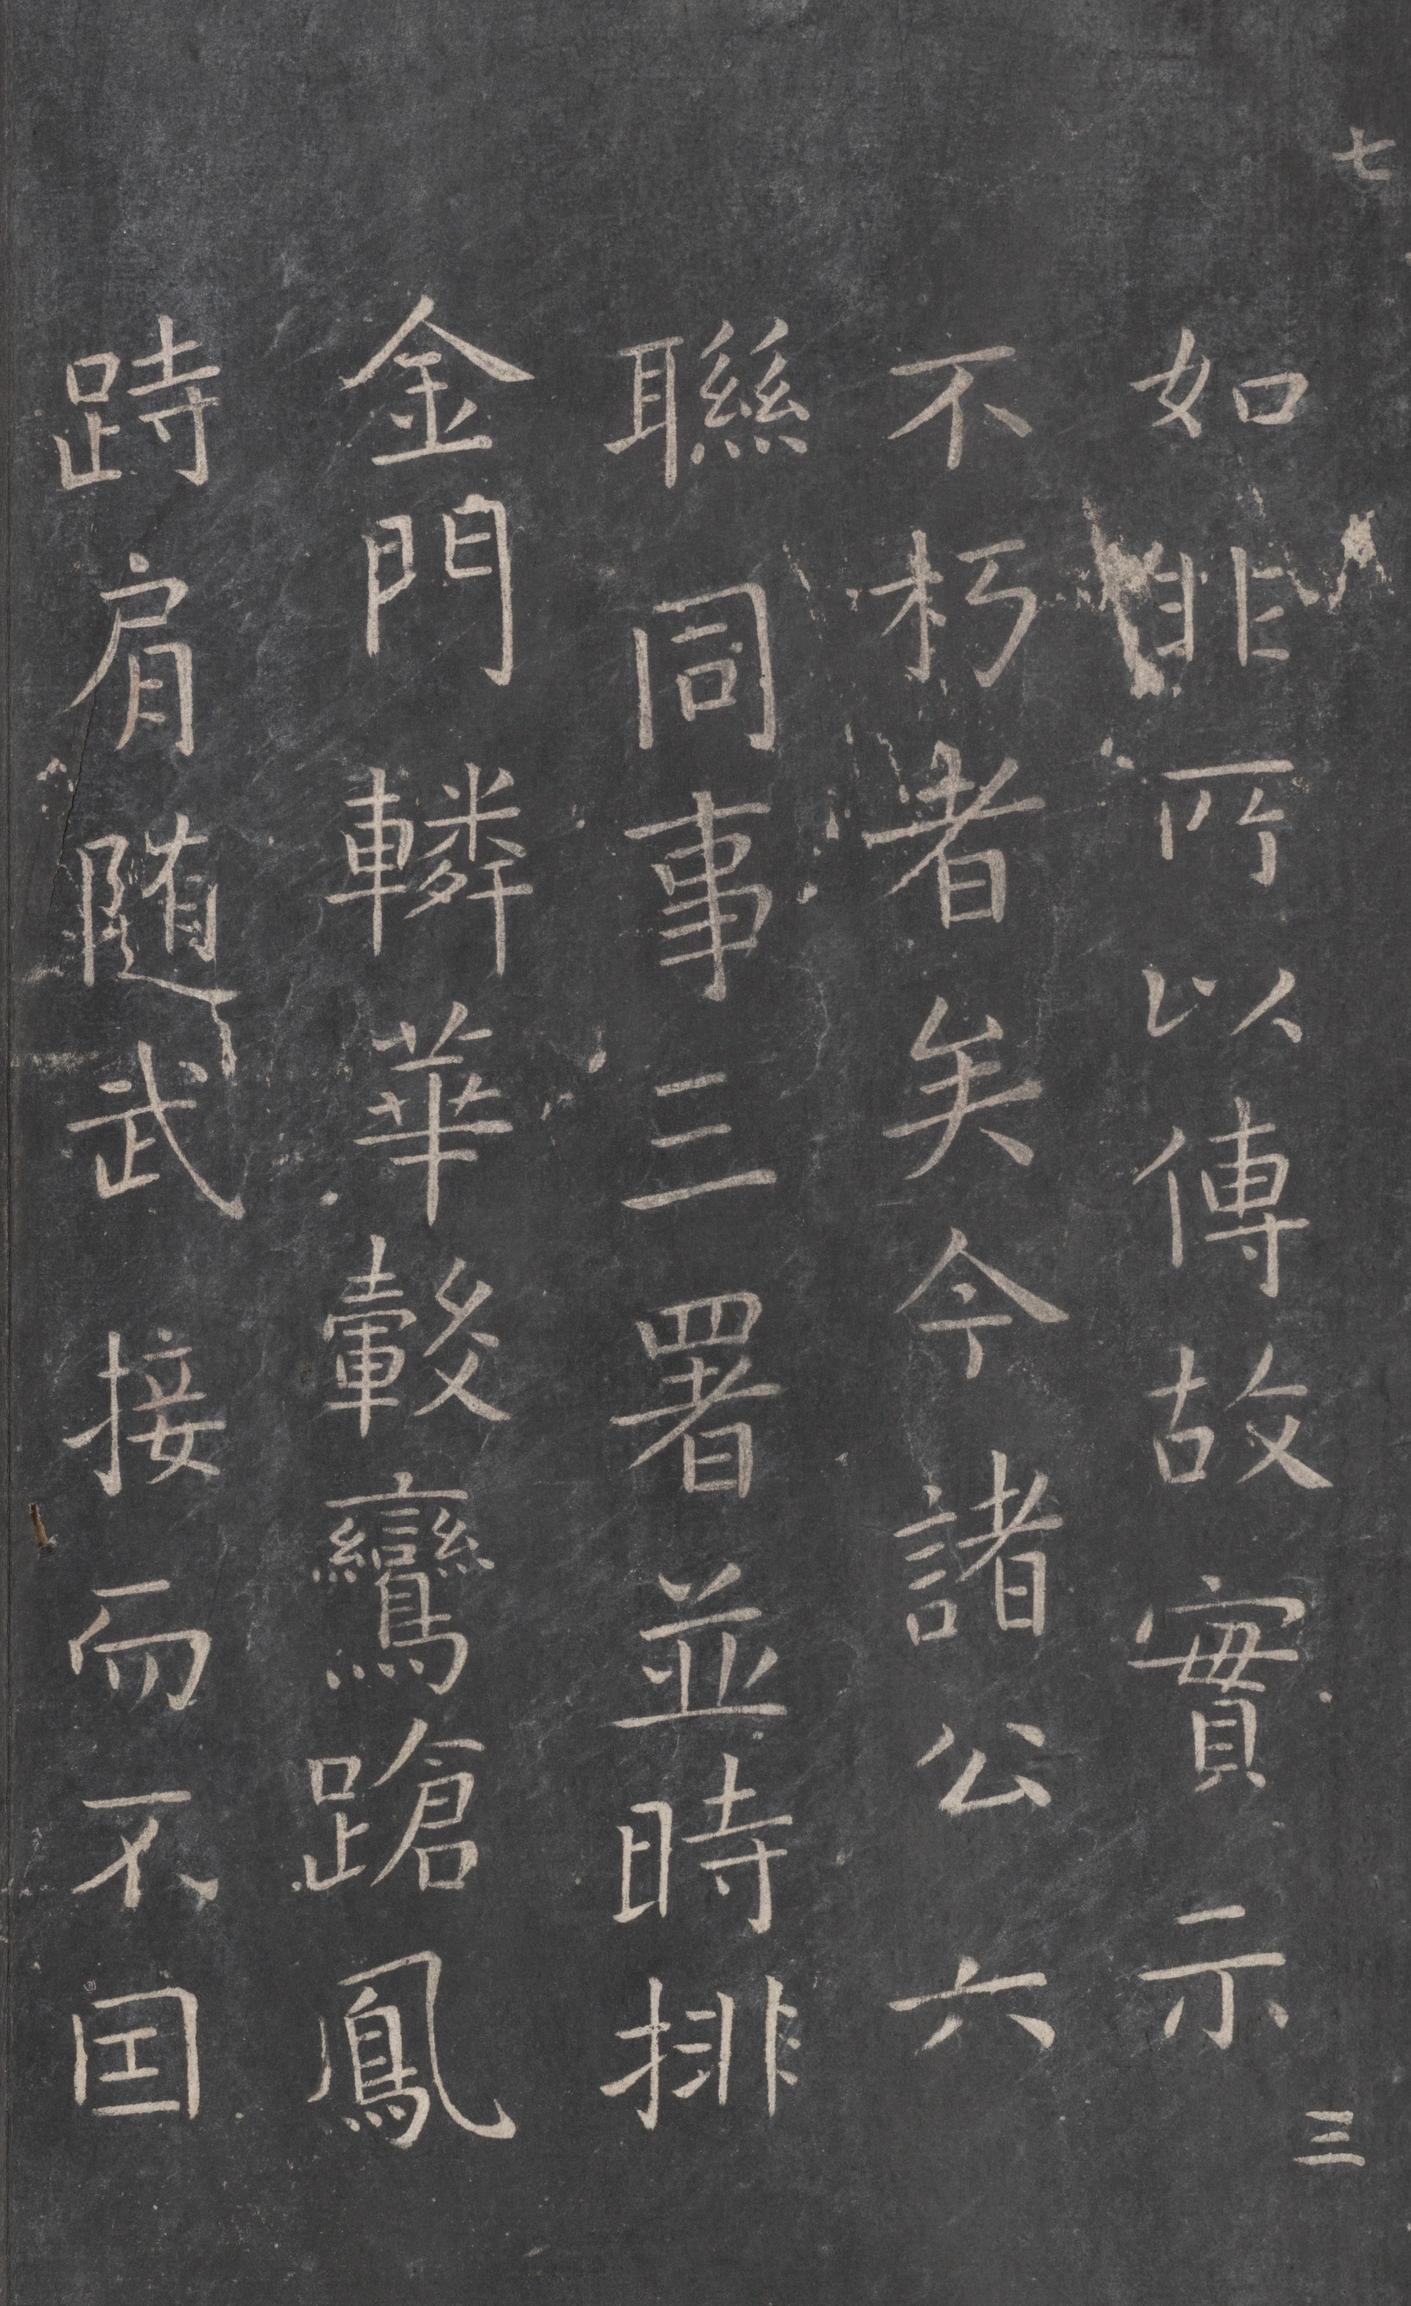 七
如非所以傳故實示
三
不朽者矣今諸公六
聯同事三署並時排
金門轔華轂鸞蹌鳳
跱肩随武接而不囯